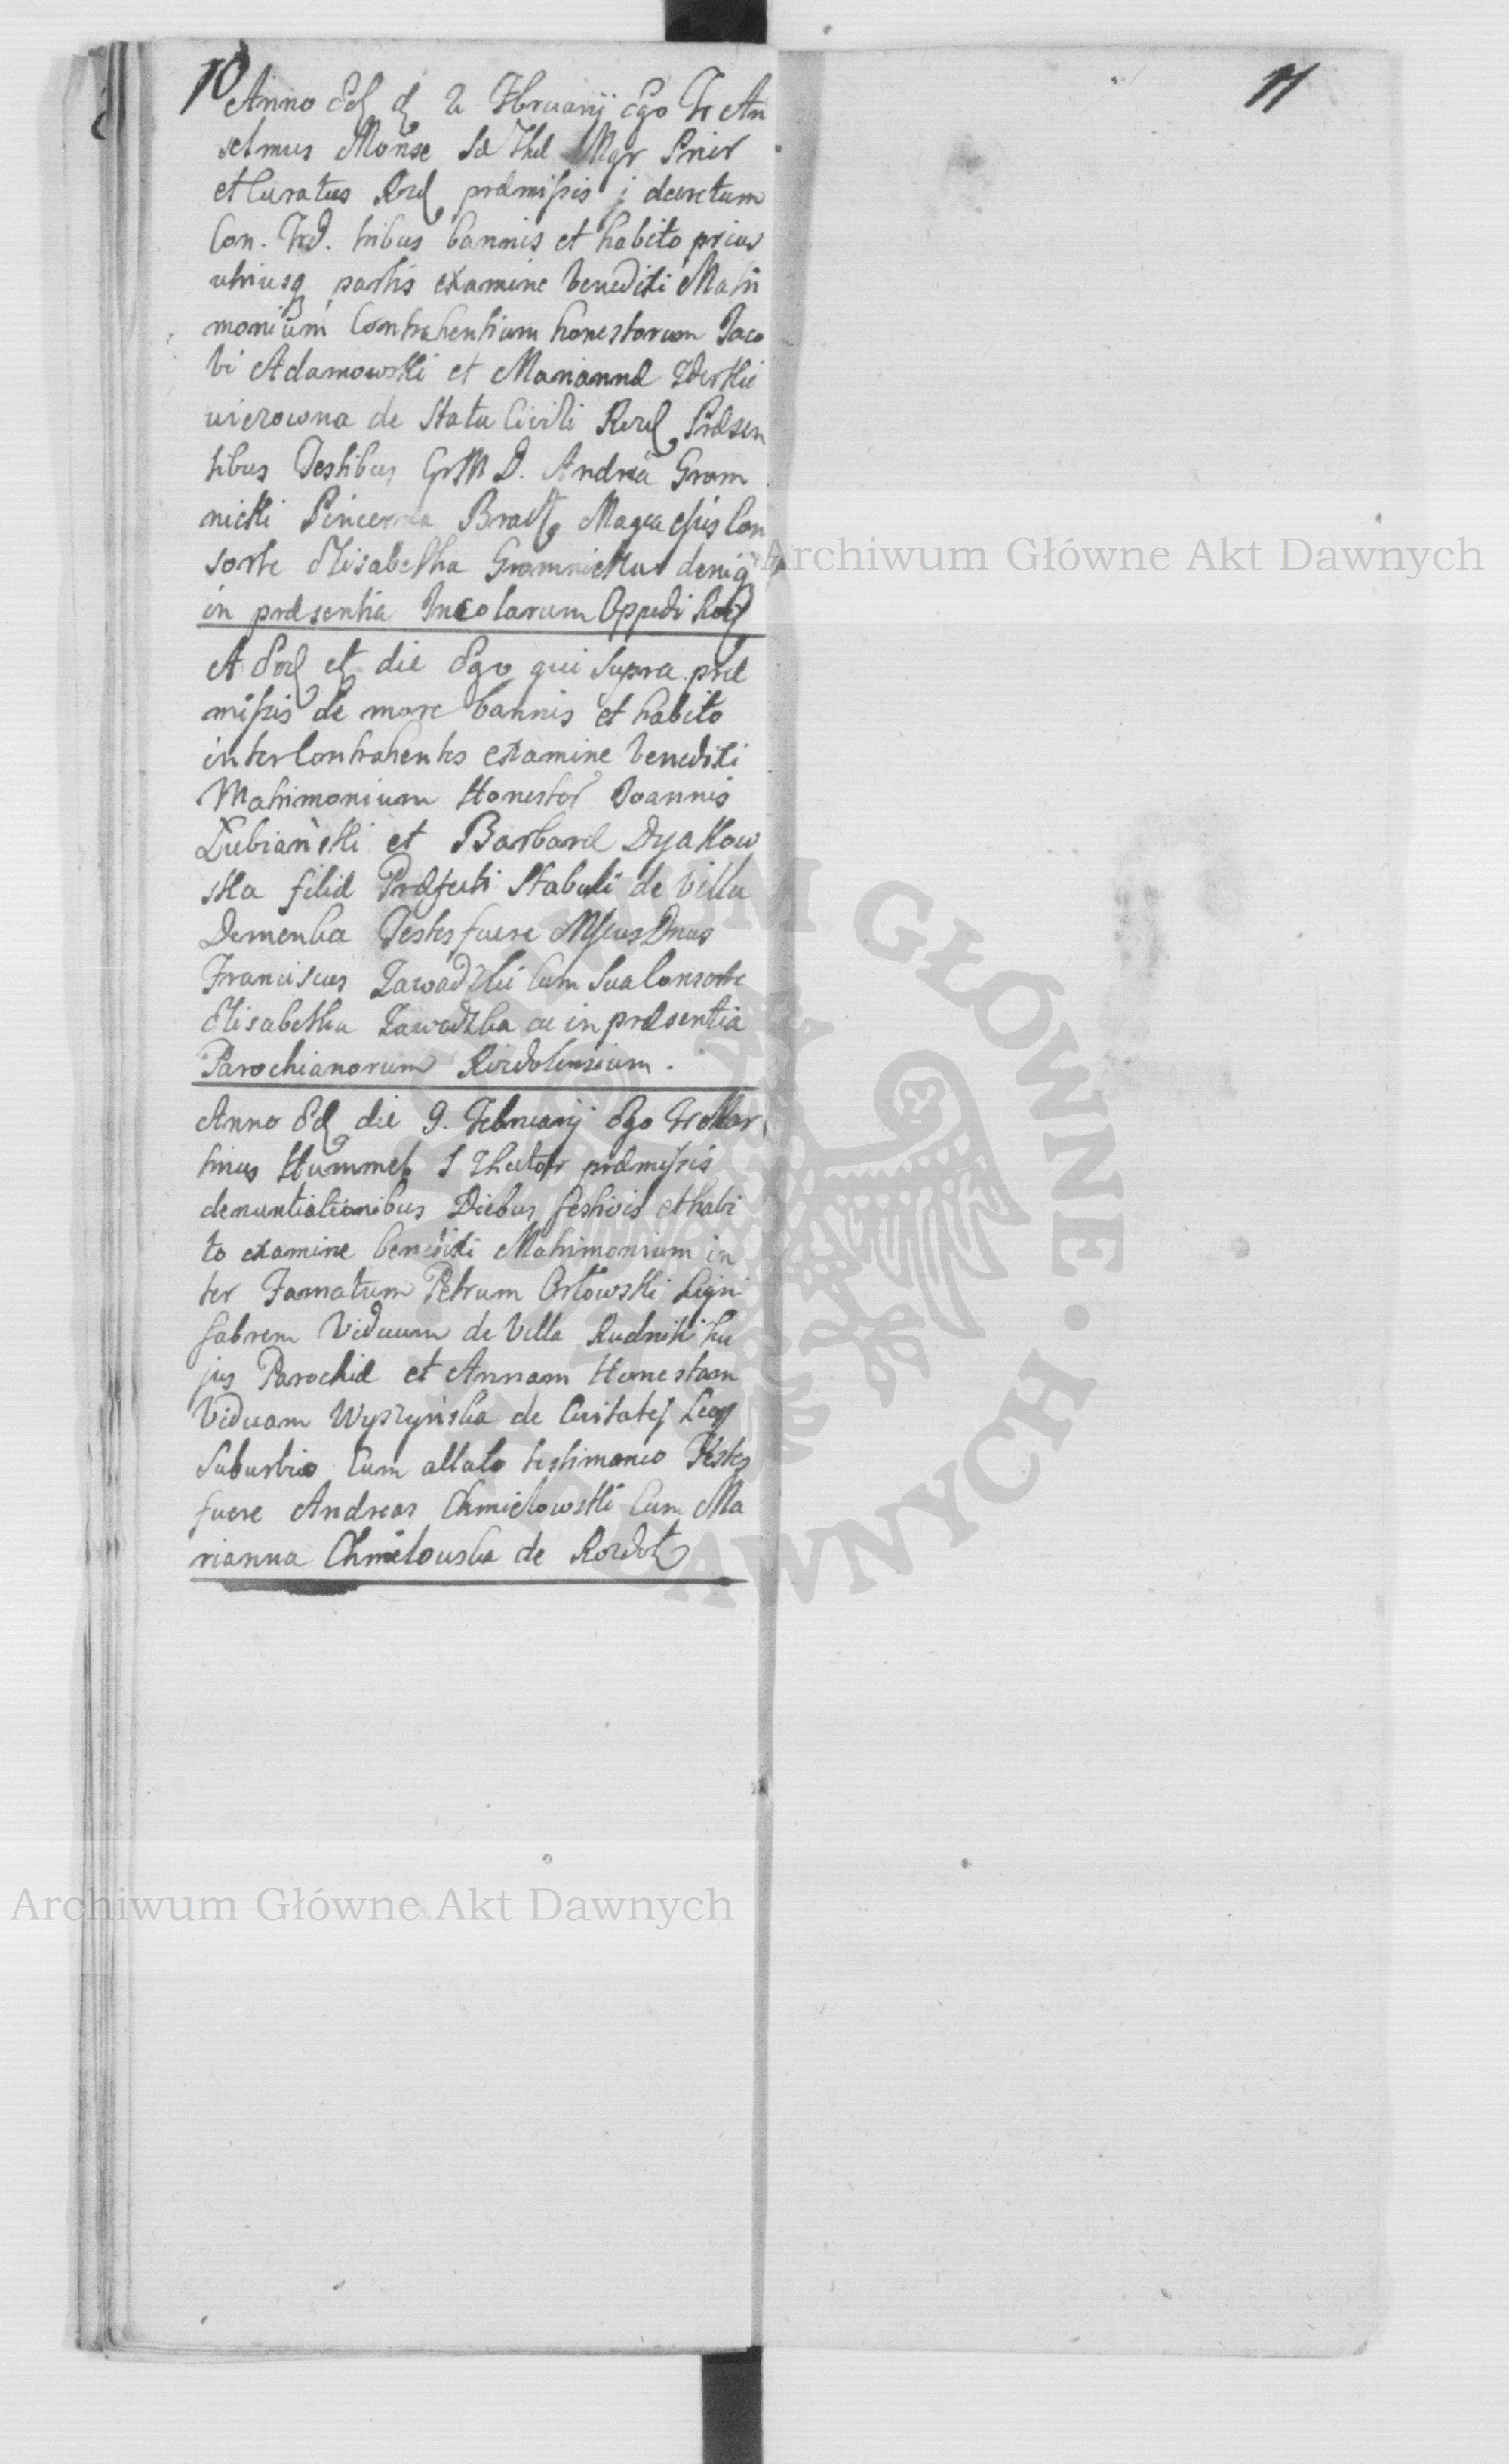 10
11
Anno Eod d 2 Februarij Ego Fr An
selmus Monse Sæ Thæ Mgr Prior
et Curatus Rozd præmissis j decretum
Con. Trid. tribus bannis et habito prius
utriusq partis examine benedixi Matri
monium Contrahentium honestorum Jaco
bi Adamowski et Mariannæ Zderkie
wiczowna de Statu Civili Rozd Præsen
tibus Testibus D. Andrea Grom
nicki Pincerna Magca ejus Con
sorte Elisabetha Gromnicka deniq
in præsentia Incolarum Oppidi Roz
A Eod et die Ego qui Supra præ
missis de more bannis et habito
inter Contrahentes examine benedixi
Matrimonium Honestor Joannis
Łubiański et Barbaræ Dyakow
ska filiæ Præfecti Stabuli de Villa
Demenka Testes fuere Dnus
Franciscus Zawadzki Cum Sua Consorte
Elisabetha Zawadzka ac in præsentia
Parochianorum Rozdolensium.
Anno Eod die 9. Februarij Ego Fr Mar
tinus Hummel S præmissis
denuntiationibus Diebus festivis et habi
to examine benedixi Matrimonium in
ter Famatum Petrum Orłowski Ligni
fabrem Viduum de Villa Rudniki hu
jus Parochiæ et Annam Honestam
Viduam Wyszyńska de Civitatej Leop
Suburbio Cum allato testimonio Testes
fuere Andreas Chmielowski Cum Ma
rianna Chmielowska de Rozdoł
Archiwum Główne Akt Dawnych
Archiwum Główne Akt Dawnych